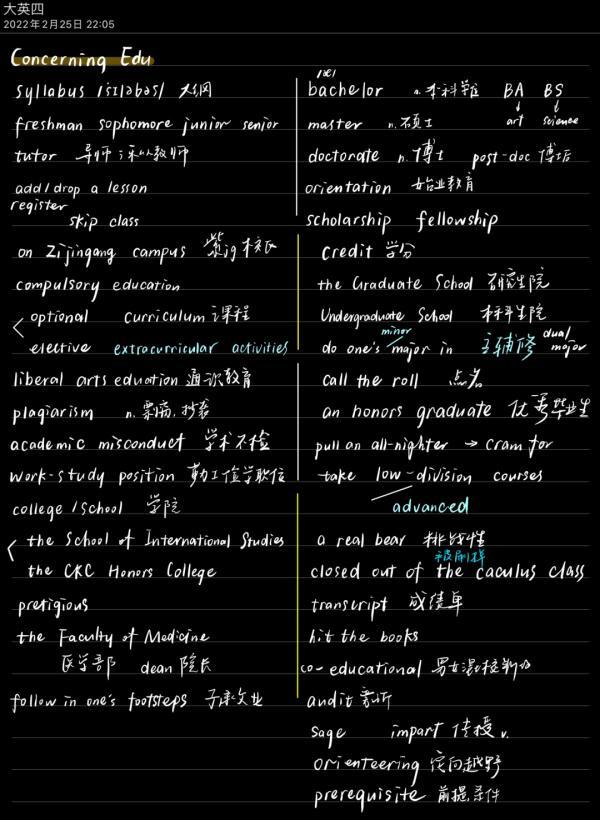 大英四
2022年2月25日 22:05
Concerning Edu
syllabus /sɪləbəs/ 大纲
freshman sophomore junior senior
tutor 导师；私人教师
add/drop a lesson
register
skip class
on Zijingang campus 紫jg校区
compulsory education
optional curriculum 课程
elective extracurricular activities
liberal arts eduation 通识教育
plagiarism n. 剽窃,抄袭
academic misconduct 学术不检
work-study position 勤工俭学职位
college/school 学院
the School of International Studies
the CKC Honors College
pretigious
the Faculty of Medicine
医学部 dean 院长
follow in one's footsteps 子承父业
bachelor n. 本科学位 BA BS
art science
master n. 硕士
doctorate n. 博士 post-doc 博士后
orientation 始业教育
scholarship fellowship
credit 学分
the Graduate School 研究生院
Undergraduate School 本科生院
minor
do one's major in 主辅修 dual major
call the roll 点名
an honors graduate 优秀毕业生
pull an all-nighter → cram for
take low-division courses
advanced
a real bear 挑战性
被刷掉
closed out of the caculus class
transcript 成绩单
hit the books
co-educational 男女混校制的
audit 旁听
sage impart 传授 v.
orienteering 定向越野
prerequisite 前提条件